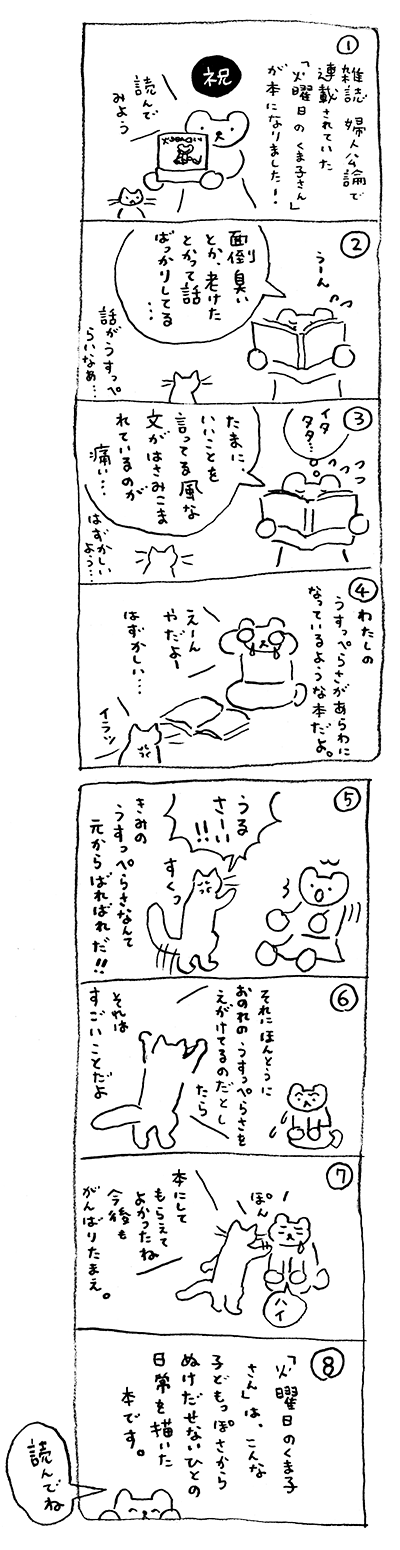 ①
雑誌 婦人公論で
連載されていた
「火曜日のくま子さん」
が本になりました！
祝
読んで
みよう
②
うーん
面倒臭い
とか、老けた
とかって話
ばっかりしてる
…
話がうすっぺ
らいなぁ…
③
イタ
タタ…
たまに
いいことを
言ってる風な
文がはさみこま
れているのが
痛い…
はずかしい
よぅ…
④
わたしの
うすっぺらさがあらわに
なっているような本だよ。
えーん
やだよー
はずかしい…
イラッ
⑤
うる
さーい
!!
すくっ
きみの
うすっぺらさなんて
元からばればれだ!!
⑥
それにほんとうに
おのれのうすっぺらさを
えがけてるのだとし
たら
それは
すごいことだよ
⑦
ぽん
本にして
もらえて
よかったね
今後も
がんばりたまえ。
ハイ
⑧
「火曜日のくま子
さん」は、こんな
子どもっぽさから
ぬけだせないひとの
日常を描いた
本です。
読んでね